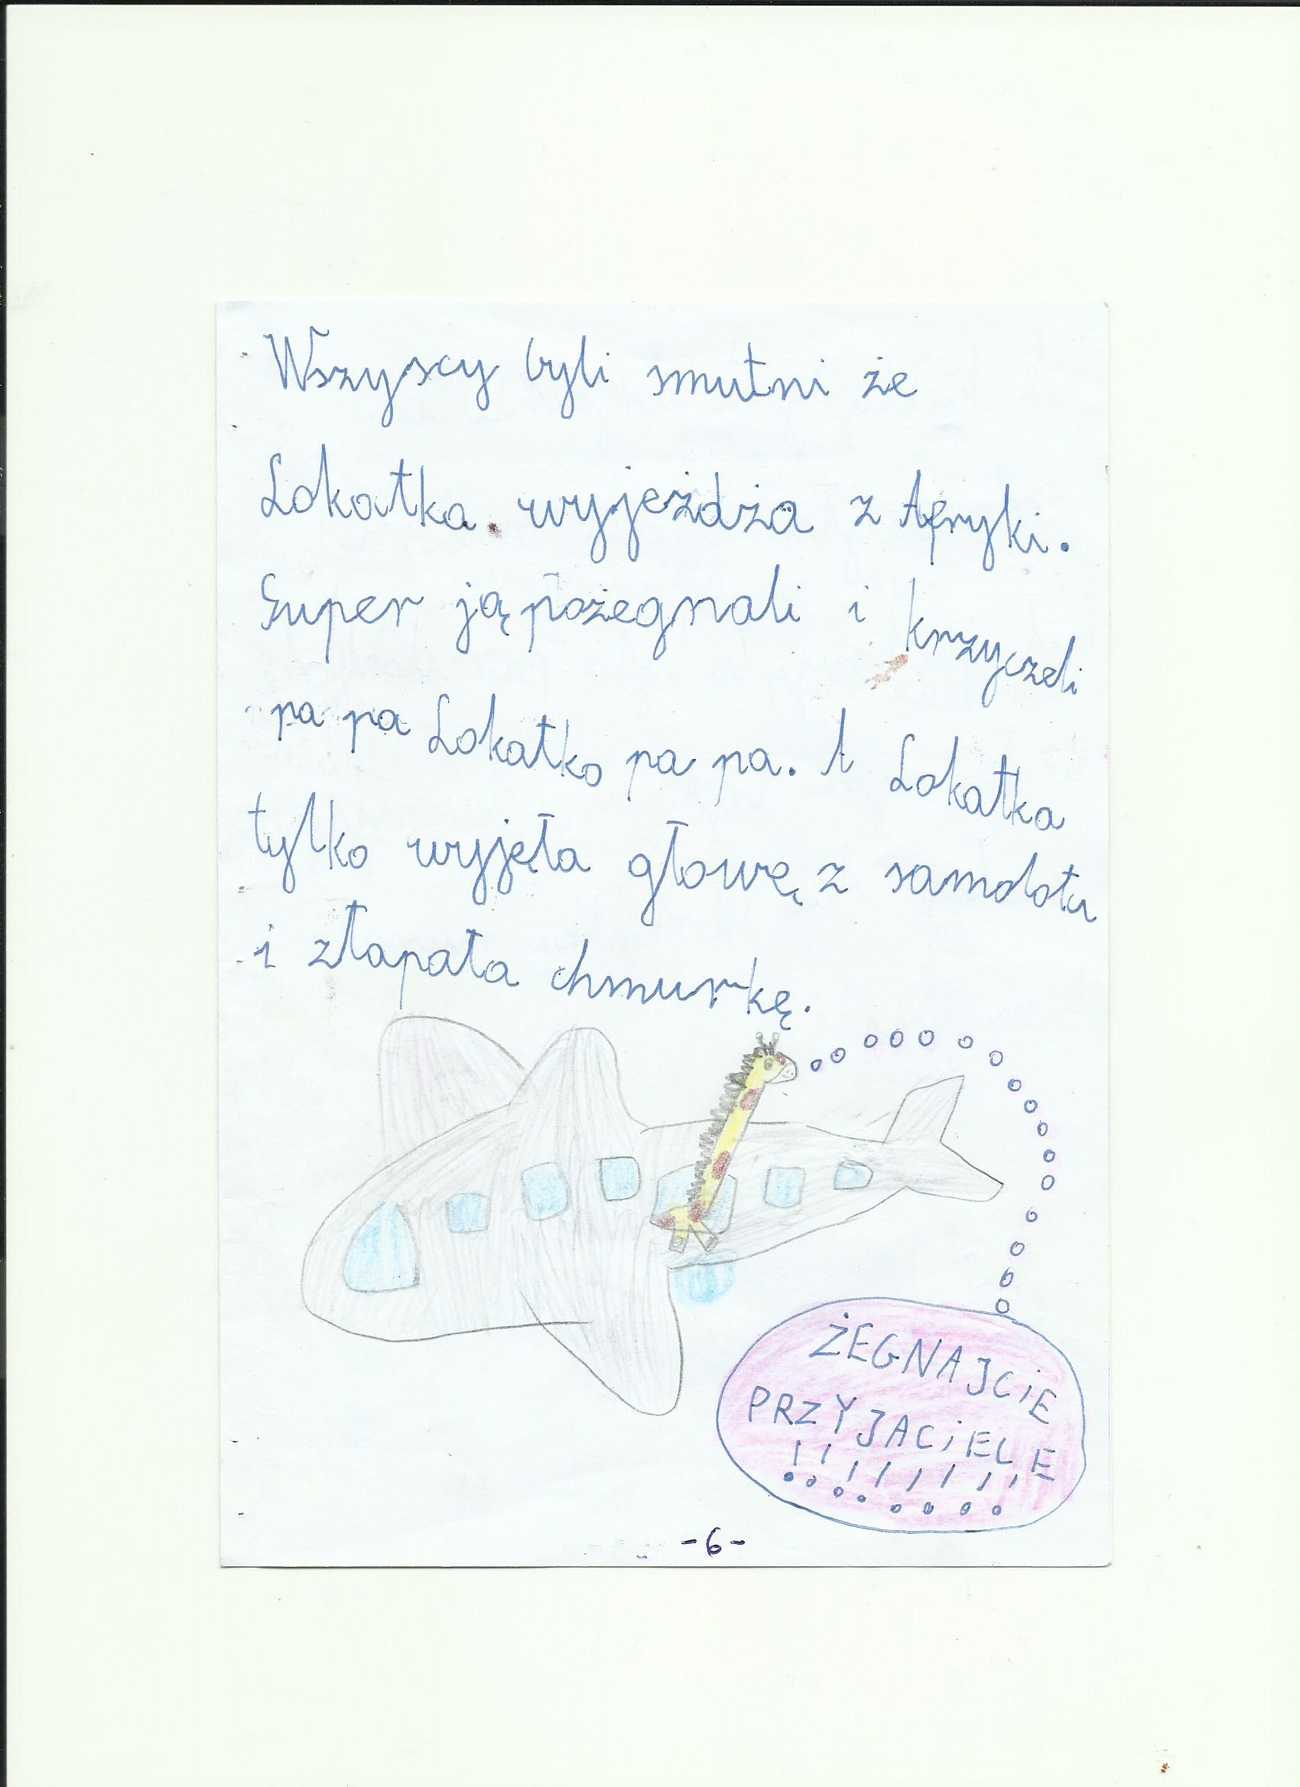 Wszyscy byli smutni że
Lokatka wyjeżdża z Afryki.
Super ją pożegnali i krzyczeli
pa pa Lokatko pa pa. A Lokatka
tylko wyjęła głowę z samolotu
i złapała chmurkę.
ŻEGNAJCiE
PRZYJACiELE
!!!!!!!!
-6-